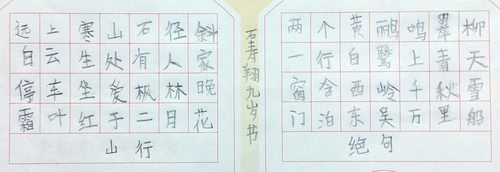 远上寒山石径斜
白云生处有人家
停车坐爱枫林晚
霜叶红于二月花
山行
石寿翔九岁书
两个黄鹂鸣翠柳
一行白鹭上青天
窗含西岭千秋雪
门泊东吴万里船
绝句